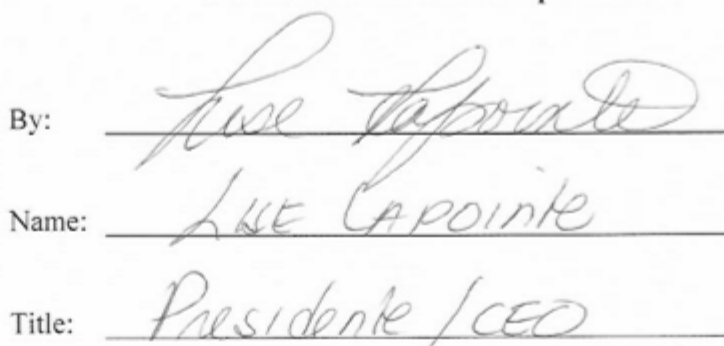 By: Lise Lapointe
Name: LISE LAPOINTE
Title: Presidente / CEO